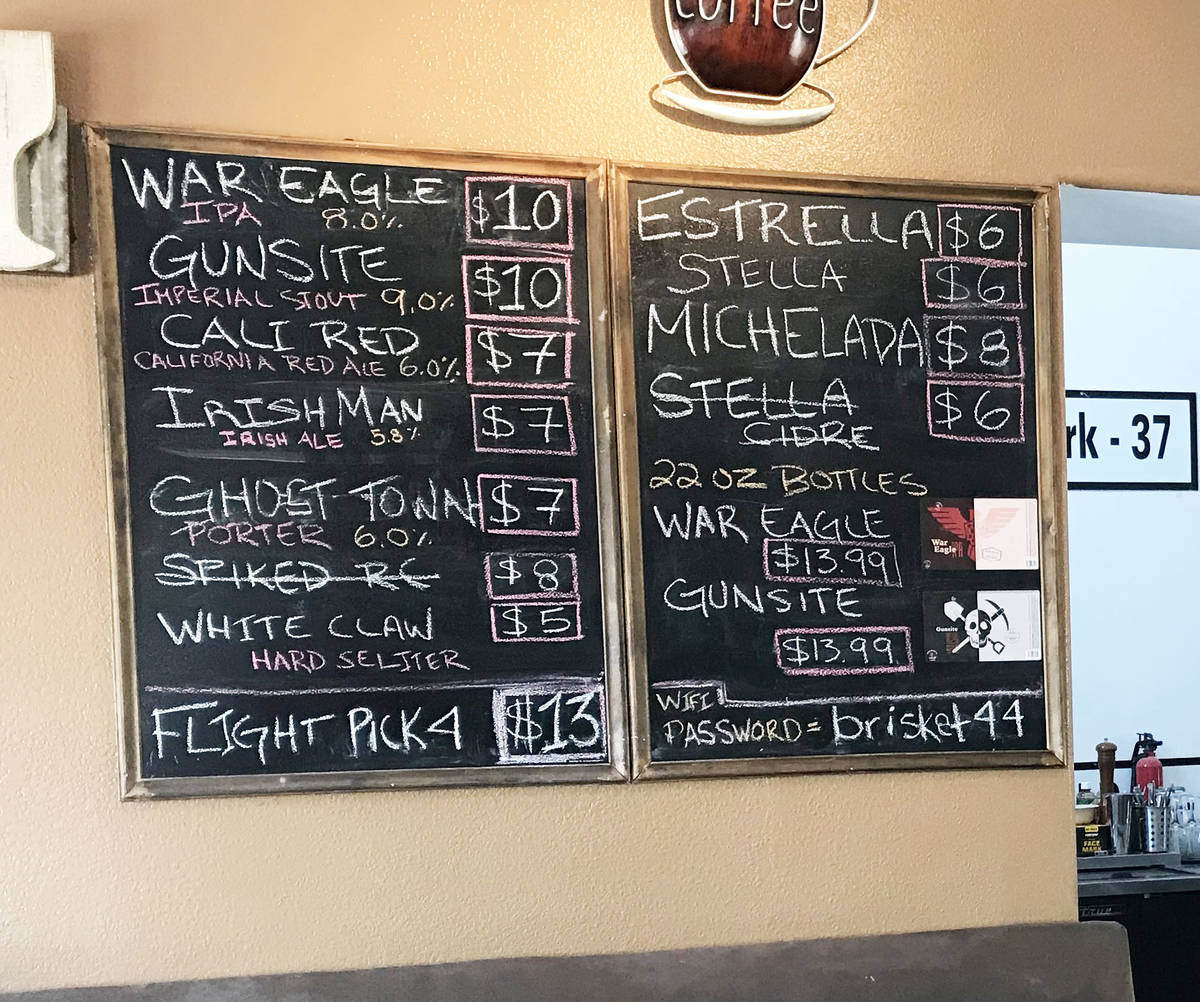 coffee
WAR EAGLE $10
IPA 8.0%
GUNSITE $10
IMPERIAL STOUT 9.0%
CALI RED $7
CALIFORNIA RED ALE 6.0%
IRISHMAN $7
IRISH ALE 5.8%
GHOST TOWN $7
PORTER 6.0%
SPIKED RC $8
WHITE CLAW $5
HARD SELTTER
FLIGHT PICK 4 $13
ESTRELLA $6
STELLA $6
MICHELADA $8
STELLA $6
CIDRE
22 OZ BOTTLES
WAR EAGLE
$13.99
War
Eagle IPA
GUNSITE
Gunsite
$13.99
WIFI
PASSWORD = brisket44
rk - 37
FACE
MASK
TRUE